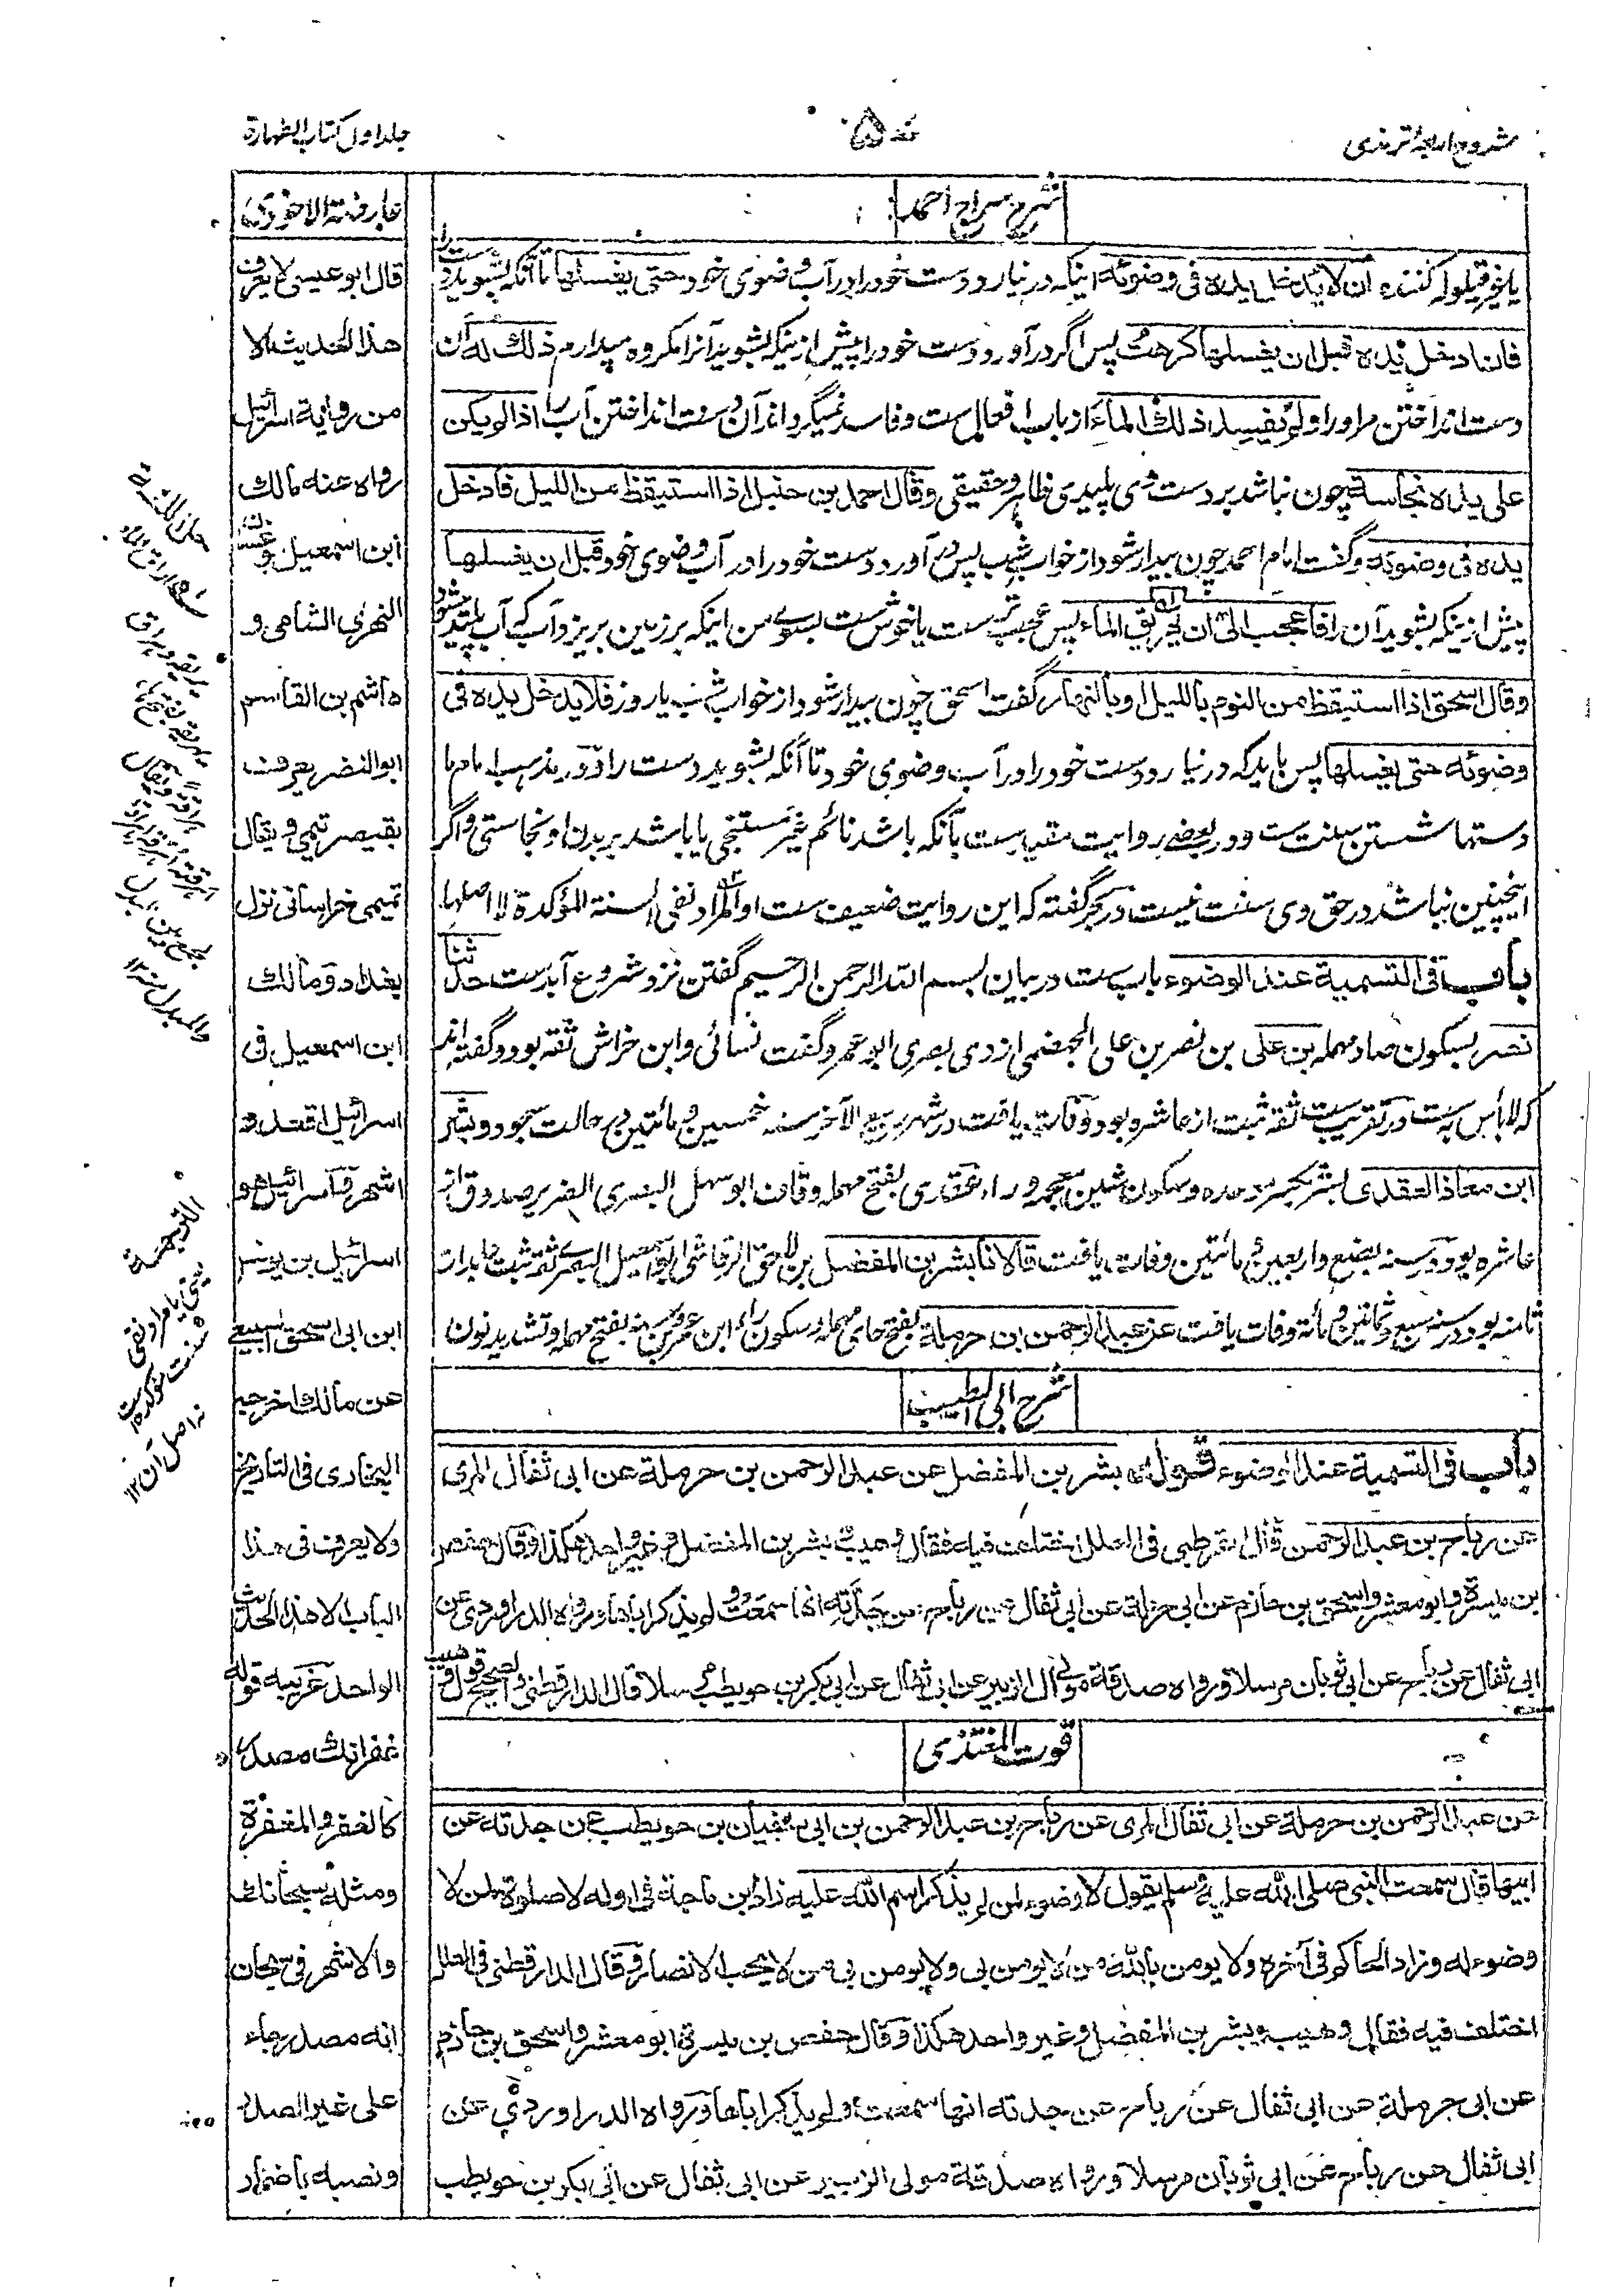 شروح اربعهٔ ترمذی
جلد اول کتاب الطهارة
شرح سراج احمد
یا غیر قیلوله کننده ان لا یدخل یده فی وضوئه اینکه در نیارد دست خود را در آب وضوی خود حتی یغسلها تا آنکه بشوید دست را
فان ادخل یده قبل ان یغسلها کرهت پس اگر در آورد دست خود را پیش از ینکه بشوید آنرا مکروه میدارم ذلك له آن
دست انداختن مر او را ولم یفسد ذلك الماء از باب افعال ست و فاسد نمیگرداند آن دست انداختن آب را اذا لم یکن
علی یده نجاسة چون نباشد بر دست وی پلیدی ظاهر و حقیقی وقال احمد بن حنبل اذا استیقظ من اللیل فادخل
یده فی وضوئه وگفت امام احمد چون بیدار شود از خواب شب پس در آورد دست خود را در آب وضوی خود قبل ان یغسلها
پیش از ینکه بشوید آن را فاعجب الیّ ان یهریق الماء پس عجیب تر ست یا خوش ست بسوے من اینکه بر زمین بریزد آب که آب پلید میشود
وقال اسحق اذا استیقظ من النوم باللیل او بالنهار گفت اسحق چون بیدار شود از خواب شب یا روز فلا یدخل یده فی
وضوئه حتی یغسلها پس باید که در نیارد دست خود را در آب وضوی خود تا آنکه بشوید دست را و در مذهب امام ما
دستها شستن سنت ست و در بعضی روایت مقید ست بآنکه باشد نائم غیر مستنجی یا باشد بر بدن او نجاستی و اگر
اینچنین نباشد در حق وی سنت نیست در بحر گفته که این روایت ضعیف ست او المراد نفی السنة المؤکدة لا اصلها
باب فی التسمیة عند الوضوء باب ست در بیان بسم الله الرحمن الرحیم گفتن نزد شروع آبدست حدثنا
نصر بسکون صاد مهمله بن علی بن نصر بن علی الجهضمی ازدی بصری ابو عمرو گفت نسائی و ابن خراش ثقه بود و گفته اند
که لا بأس به ست در تقریب ست ثقه ثبت از عاشره بود وفات یافت در شهر ربیع الآخر سنه خمسین و مائتین در حالت سجود و بشر
ابن معاذ العقدی بشر بکسر موحده و سکون شین معجمه و راء عقدی بفتح مهمله و قاف ابو سهل البصری الضریر صدوق از
عاشره بود در سنه بضع و اربعین و مائتین وفات یافت قالا نا بشر بن المفضل بن لاحق الرقاشی ابو اسمعیل البصری ثقه ثبت عابد از
ثامنه بود در سنه سبع و ثمانین و مائة وفات یافت عن عبد الرحمن بن حرملة بفتح حای مهمله و سکون راء ابن عمرو بن سنة بفتح مهمله و تشدید نون
شرح ابی الطیب
باب فی التسمیة عند الوضوء قوله بشر بن المفضل عن عبد الرحمن بن حرملة عن ابی ثفال المری
عن رباح بن عبد الرحمن قال الدارقطنی فی العلل اختلف فیه فقال وهیب بشر بن المفضل وغیر واحد هکذا وقال حفص
بن میسرة وابو معشر واسحق بن حازم عن ابی حرملة عن ابی ثفال عن رباح عن جدته انها سمعت ولم یذکر اباها ورواه الدراوردی عن
ابی ثفال عن رباح عن ابی ثوبان مرسلا ورواه صدقة مولی آل الزبیر عن ابی ثفال عن ابی بکر بن حویطب مرسلا قال الدارقطنی والصحیح قول وهیب
قوت المغتذی
عن عبد الرحمن بن حرملة عن ابی ثفال المری عن رباح بن عبد الرحمن بن ابی سفیان بن حویطب عن جدته عن
ابیها قال سمعت النبی صلی الله علیه وسلم یقول لا وضوء لمن لم یذکر اسم الله علیه زاد ابن ماجة فی اوله لا صلوة لمن لا
وضوء له وزاد الحاکم فی آخره ولا یومن بالله من لا یومن بی ولا یومن بی من لا یحب الانصار وقال الدارقطنی فی العلل
اختلف فیه فقال وهیب وبشر بن المفضل وغیر واحد هکذا وقال حفص بن میسرة ابو معشر واسحق بن حازم
عن ابی حرملة عن ابی ثفال عن رباح عن جدته انها سمعت ولم یذکر اباها ورواه الدراوردی عن
ابی ثفال عن رباح عن ابی ثوبان مرسلا ورواه صدقة مولی الزبیر عن ابی ثفال عن ابی بکر بن حویطب
عارضة الاحوذی
قال ابو عیسی لا یعرف
هذا الحدیث الا
من روایة اسرائیل
رواه عنه مالك
ابن اسمعیل ابو غسان
النهری الشامی و
هاشم بن القاسم
ابو النضر یعرف
بقیصر تیمی ویقال
تمیمی خراسانی نزل
بغداد ومالك
ابن اسمعیل فی
اسرائیل اقعد و
اشهر واسرائیل هو
اسرائیل بن یونس
ابن ابی اسحق السبیعی
عن مالك اخرجه
البخاری فی التاریخ
ولا یعرف فی هذا
الباب الا هذا الحدیث
الواحد غریبه قوله
غفرانك مصدر
کالغفر والمغفرة
ومثله سبحانك
والاشهر فی سبحان
انه مصدر جاء
علی غیر الصدر
ونصبه باضمار
الترجمة
یعنی یا مراد نفی
سنت مؤکده است
نه اصل آن ۱۲